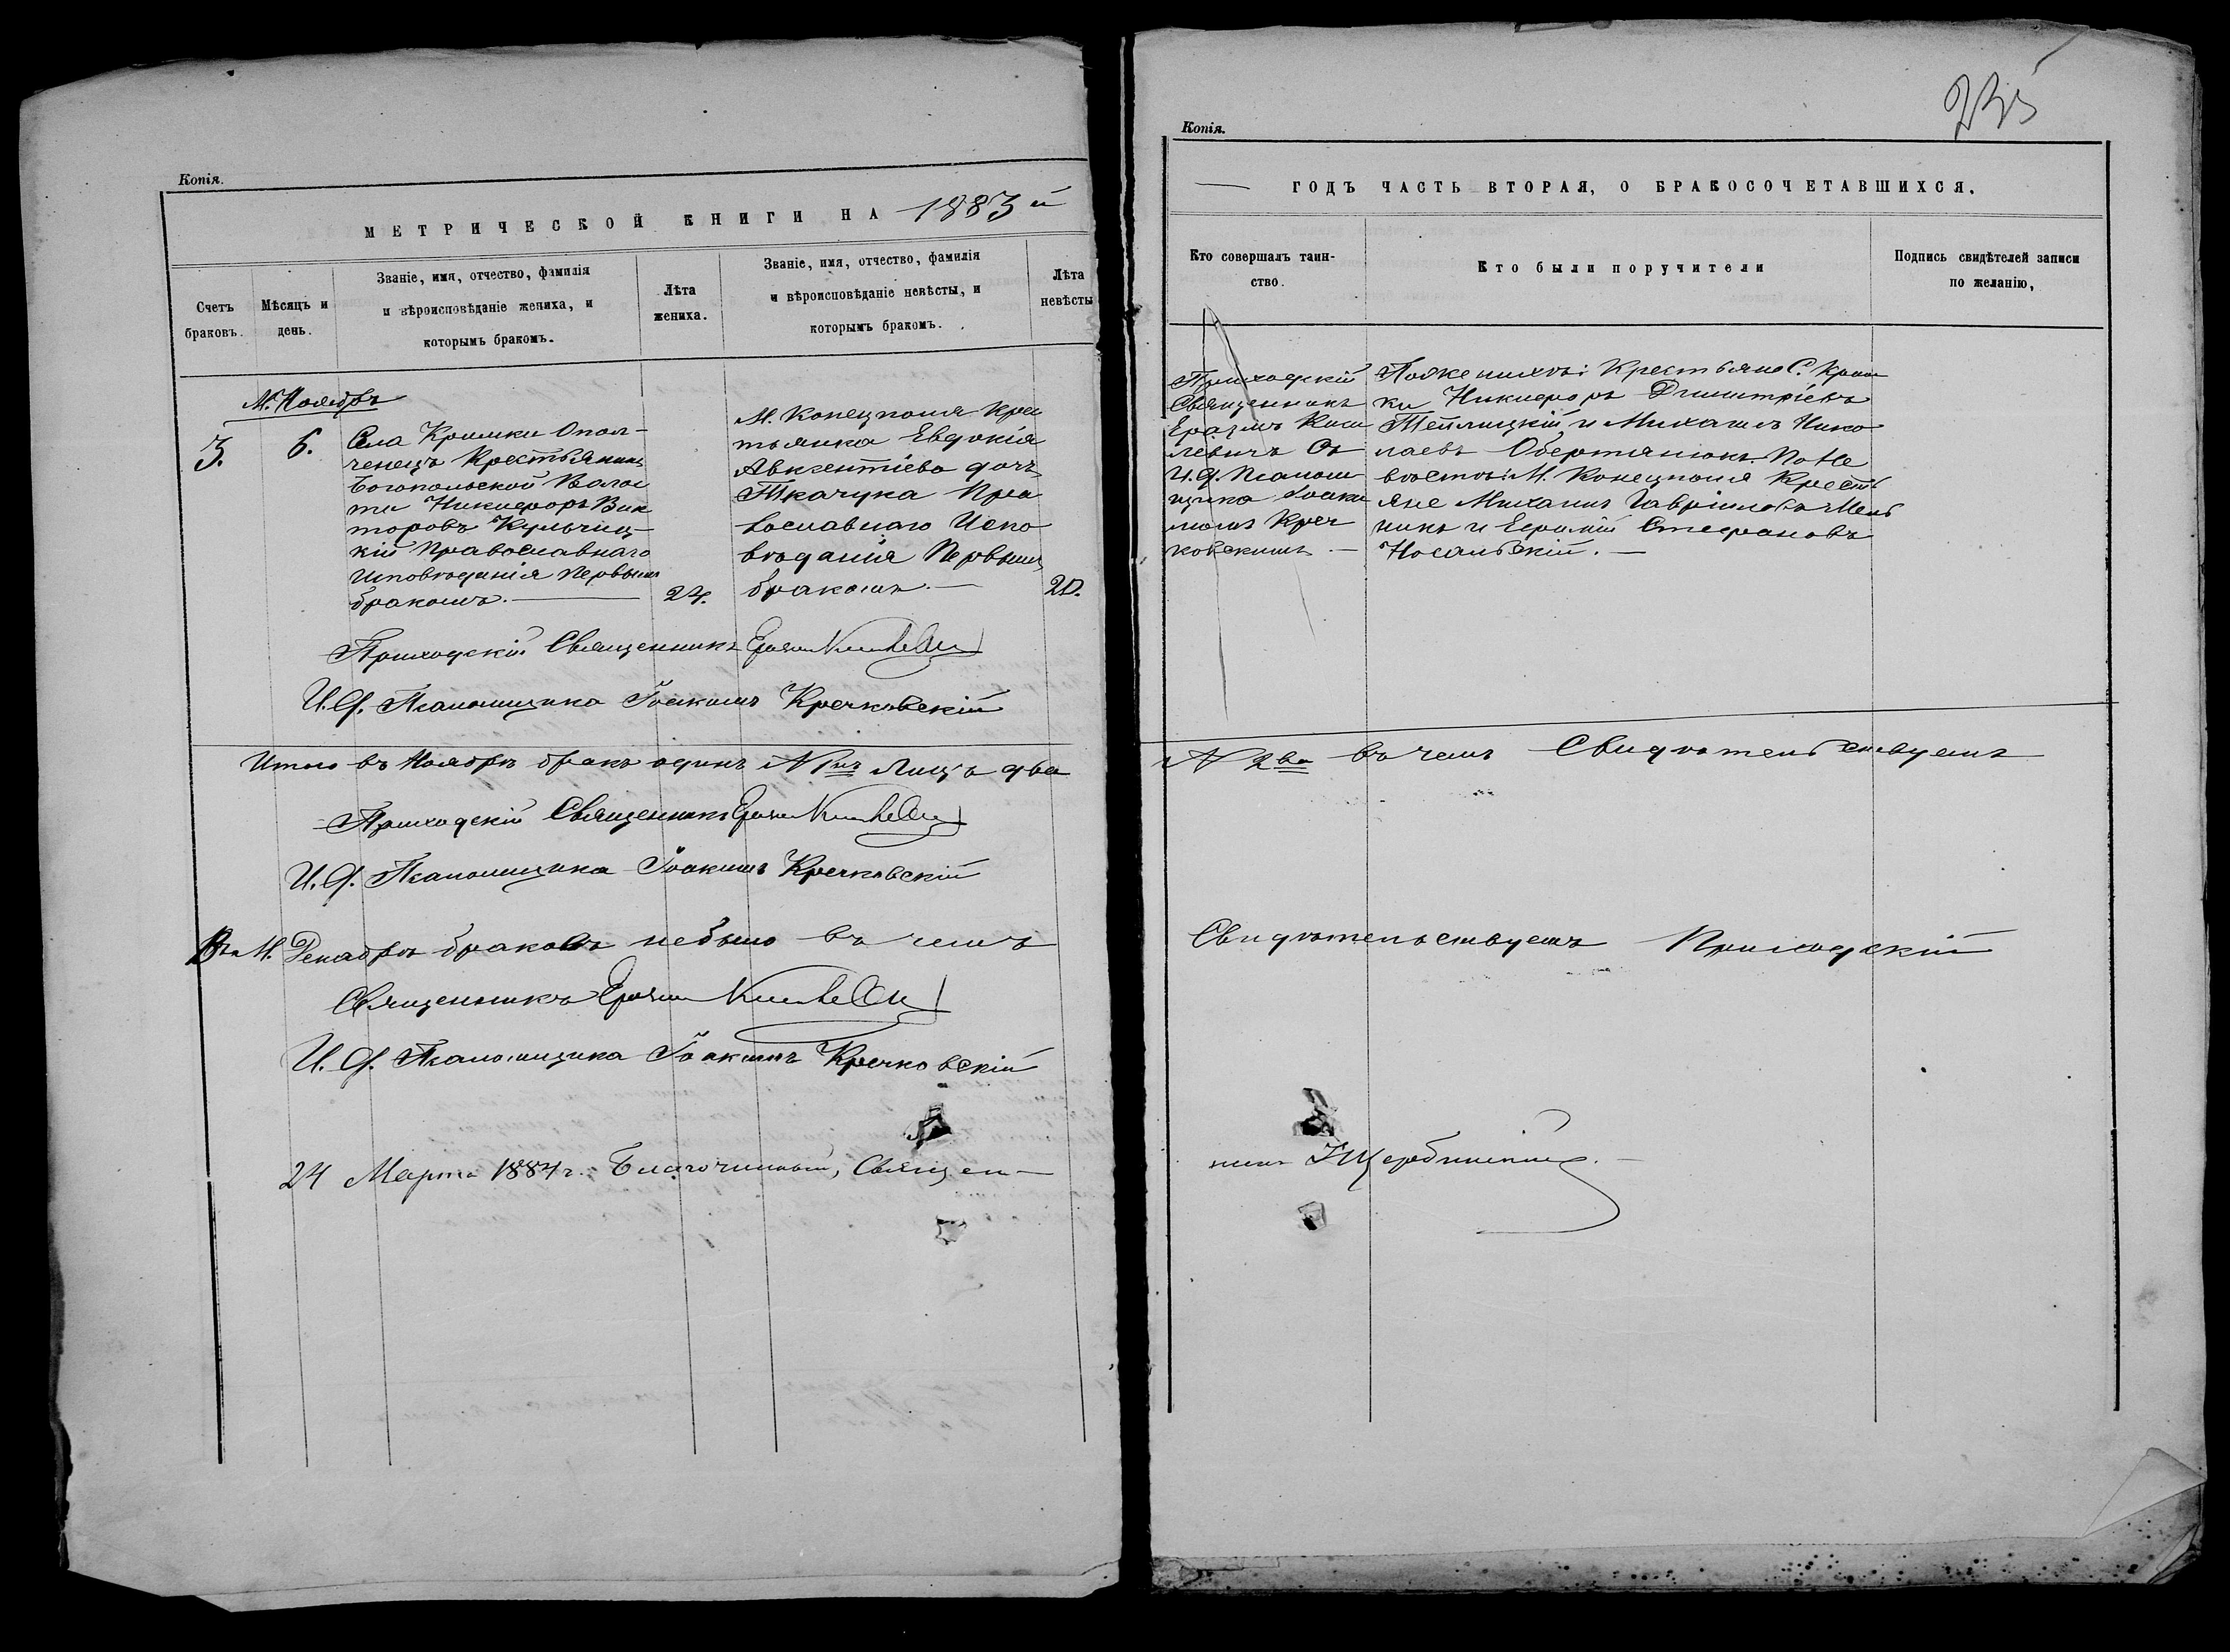 Копія.
МЕТРИЧЕСКОЙ КНИГИ НА 1883й
Счетъ браковъ.
Мѣсяцъ и день.
Званіе, имя, отчество, фамилія
и вѣроисповѣданіе жениха, и
которымъ бракомъ.
Лѣта жениха.
Званіе, имя, отчество, фамилія
и вѣроисповѣданіе невѣсты, и
которымъ бракомъ.
Лѣта невѣсты
М. Ноябрь
3.
6.
Села Кримки Опол-
ченецъ Крестьянинъ
Богопольской Волос
ти Никифоръ Вик
торовъ Кульчиц-
кій Православнаго
Исповѣданія Первымъ
бракомъ.
24.
М. Конецполя Крес
тьянка Евдокія
Авксентіева дочь
Ткачука Пра
вославнаго Испо
вѣданія Первымъ
бракомъ.
20.
Приходскій Священникъ Еразмъ
И. д. Псаломщика Іоакимъ Кречковскій
Итого въ Ноябрѣ бракъ одинъ № 1нъ Лицъ два
Приходскій Священникъ Еразмъ
И. д. Псаломщика Іоакимъ Кречковскій
Въ М. Декабрѣ браковъ небыло въ чемъ
Священникъ Еразмъ
И. д. Псаломщика Іоакимъ Кречковскій
24 Марта 1884 г. Благочинный, Священ-
Копія.
235
ГОДЪ ЧАСТЬ ВТОРАЯ, О БРАКОСОЧЕТАВШИХСЯ.
Кто совершалъ таин-
ство.
Кто были поручители
Подпись свидѣтелей записи
по желанію,
Приходскій
Священникъ
Еразмъ
левичъ Съ
И. д. Псалом
щика Іоаки
момъ Креч
ковскимъ
По женихѣ: Крестьяне С. Крим
ки Никифоръ Димитріевъ
Теплицкій и Михаилъ Нико
лаевъ Обертянюкъ. По Не
вѣстѣ: М. Конецполя Кресть
яне Михаилъ Гавріиловъ Мель
никъ и Ефимій Стефановъ
Носальскій.
№ 2ва въ чемъ Свидѣтельствуемъ
Свидѣтельствуемъ Приходскій
никъ І Щербинскій